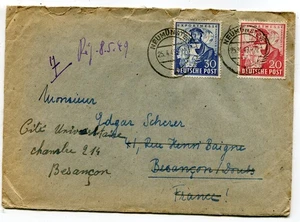 Rép. 8.5.49
NEUMÜNSTER
30
DEUTSCHE POST
20
DEUTSCHE POST
Monsieur
Edgar Scherer
Cité Universitaire
chambre 214
Besançon
41, Rue Ernest
Besançon/Doubs
France!